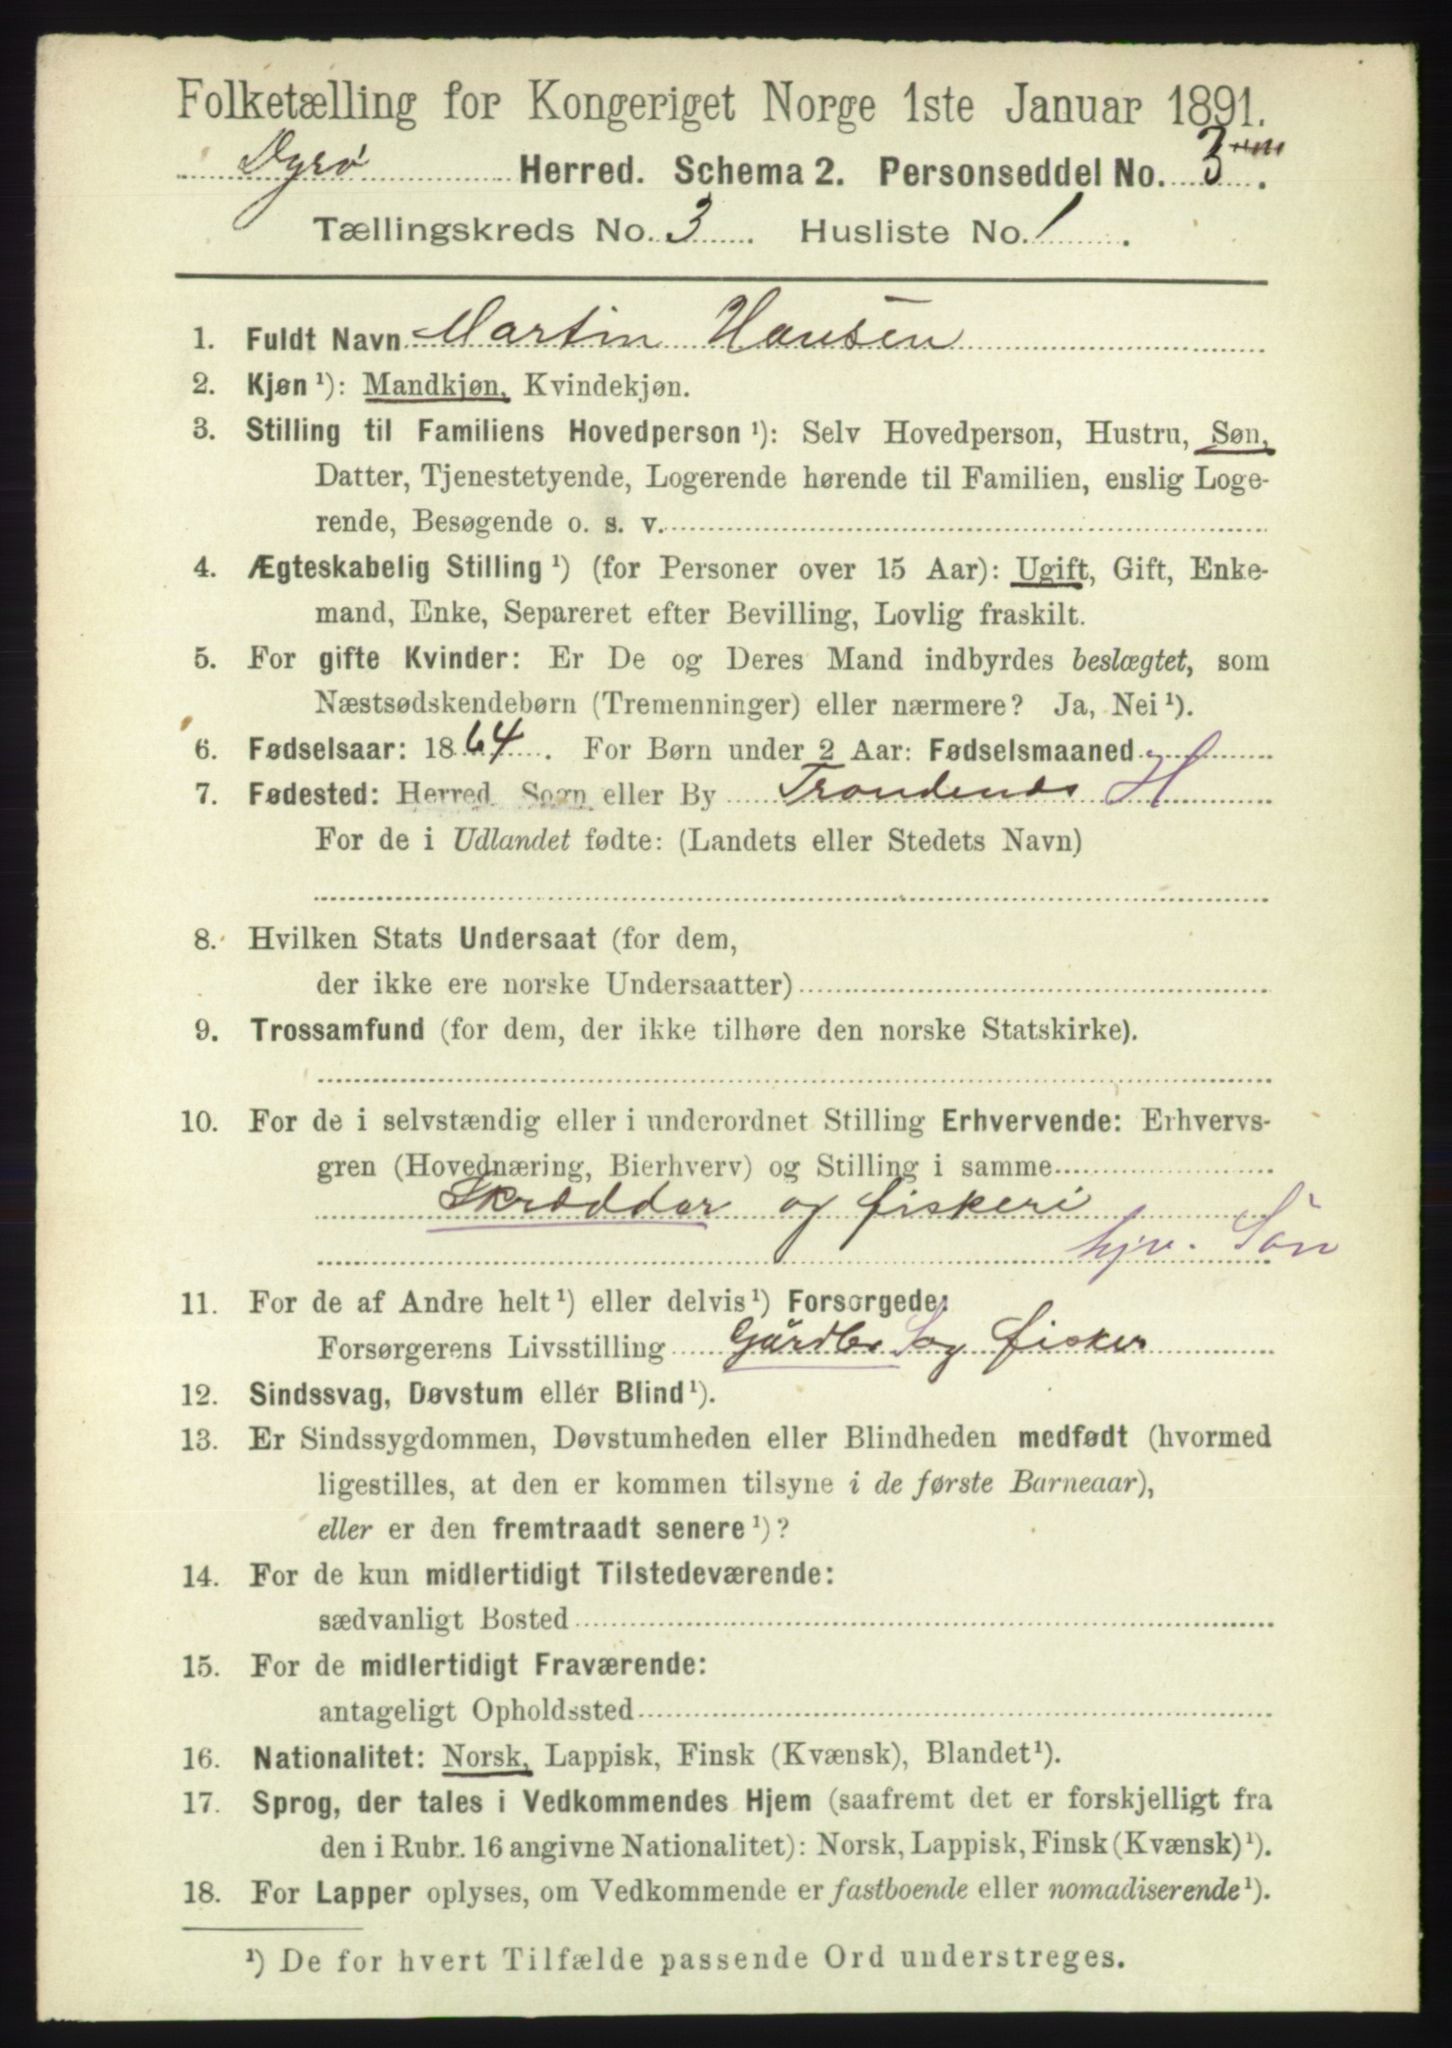 Folketælling for Kongeriget Norge 1ste Januar 1891.
Dyrø Herred. Schema 2. Personseddel No. 3
Tællingskreds No. 3. Husliste No. 1.
1. Fuldt Navn Martin Hansen
2. Kjøn ¹): Mandkjøn, Kvindekjøn.
3. Stilling til Familiens Hovedperson ¹): Selv Hovedperson, Hustru, Søn,
Datter, Tjenestetyende, Logerende hørende til Familien, enslig Loge-
rende, Besøgende o. s. v.
4. Ægteskabelig Stilling ¹) (for Personer over 15 Aar): Ugift, Gift, Enke-
mand, Enke, Separeret efter Bevilling, Lovlig fraskilt.
5. For gifte Kvinder: Er De og Deres Mand indbyrdes beslægtet, som
Næstsødskendebørn (Tremenninger) eller nærmere? Ja, Nei ¹).
6. Fødselsaar: 1864. For Børn under 2 Aar: Fødselsmaaned
7. Fødested: Herred, Sogn eller By Trondends H
For de i Udlandet fødte: (Landets eller Stedets Navn)
8. Hvilken Stats Undersaat (for dem,
der ikke ere norske Undersaatter)
9. Trossamfund (for dem, der ikke tilhøre den norske Statskirke).
10. For de i selvstændig eller i underordnet Stilling Erhvervende: Erhvervs-
gren (Hovednæring, Bierhverv) og Stilling i samme
Skræddar og fiskeri
hjv. Søn
11. For de af Andre helt ¹) eller delvis ¹) Forsørgede:
Forsørgerens Livsstilling Gårdbr S og fisker
12. Sindssvag, Døvstum eller Blind ¹).
13. Er Sindssygdommen, Døvstumheden eller Blindheden medfødt (hvormed
ligestilles, at den er kommen tilsyne i de første Barneaar),
eller er den fremtraadt senere ¹)?
14. For de kun midlertidigt Tilstedeværende:
sædvanligt Bosted
15. For de midlertidigt Fraværende:
antageligt Opholdssted
16. Nationalitet: Norsk, Lappisk, Finsk (Kvænsk), Blandet ¹).
17. Sprog, der tales i Vedkommendes Hjem (saafremt det er forskjelligt fra
den i Rubr. 16 angivne Nationalitet): Norsk, Lappisk, Finsk (Kvænsk) ¹).
18. For Lapper oplyses, om Vedkommende er fastboende eller nomadiserende ¹).
¹) De for hvert Tilfælde passende Ord understreges.